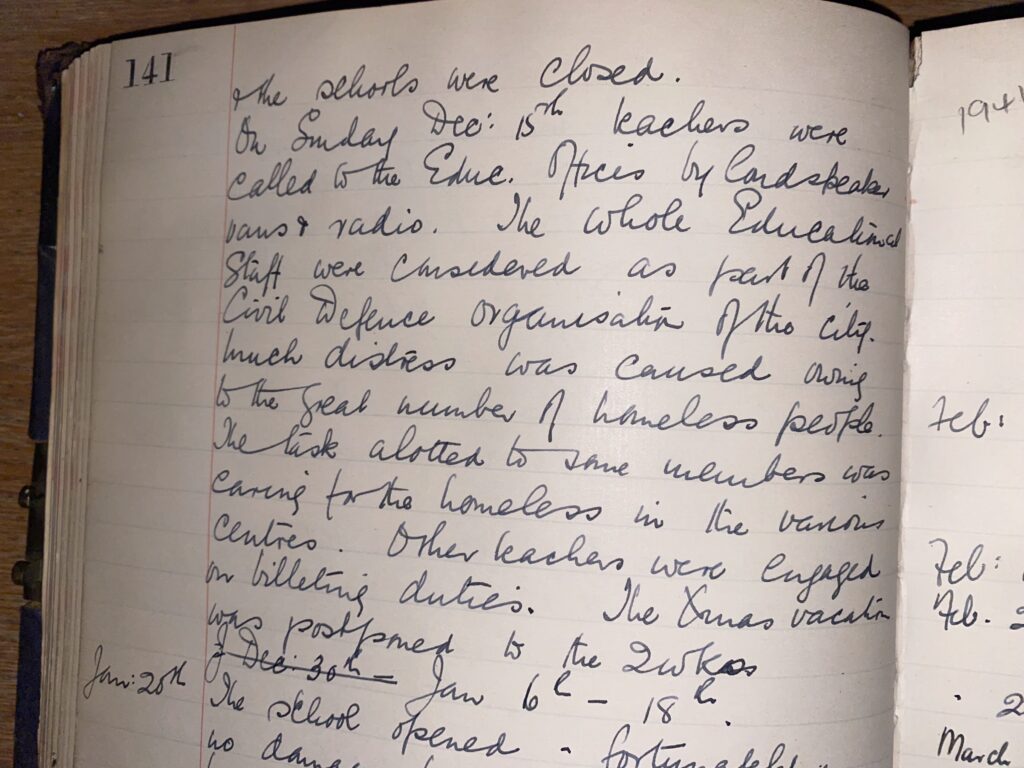 141
& the schools were closed.
On Sunday Dec: 15th teachers were
called to the Educ. Offices by loudspeaker
vans & radio. The whole Educational
Staff were considered as part of the
Civil Defence organisation of the city.
Much distress was caused owing
to the great number of homeless people.
The task alotted to some members was
caring for the homeless in the various
centres. Other teachers were engaged
on billeting duties. The Xmas vacation
was postponed to the 2 wks
Dec: 30th — Jan 6th – 18th.
Jan: 20th The school opened - fortunately
no
194
Feb:
Feb:
Feb. 2
" 2
March